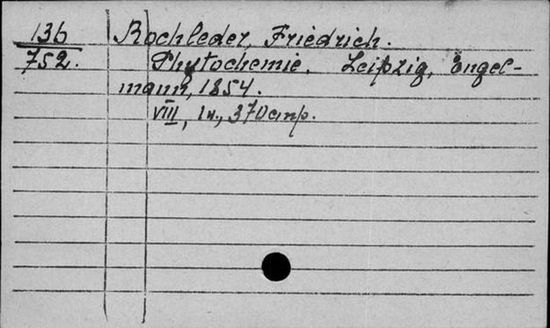 136 Rochleder, Friedrich.
752. Phytochemie. Leipzig, Engel-
mann, 1854.
VIII, 1н., 370 стр.